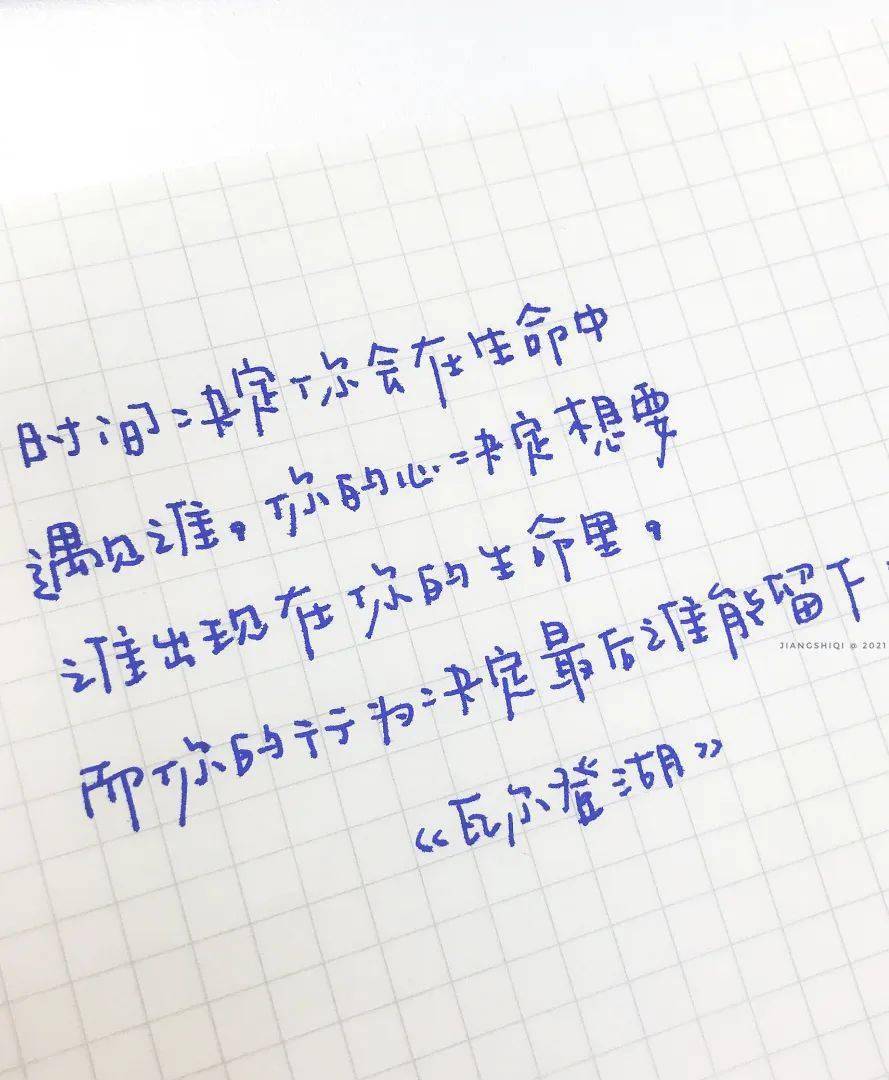 时间决定你会在生命中
遇见谁。你的心决定想要
谁出现在你的生命里。
而你的行为决定最后谁能留下
JIANGSHIQI @ 2021
《瓦尔登湖》